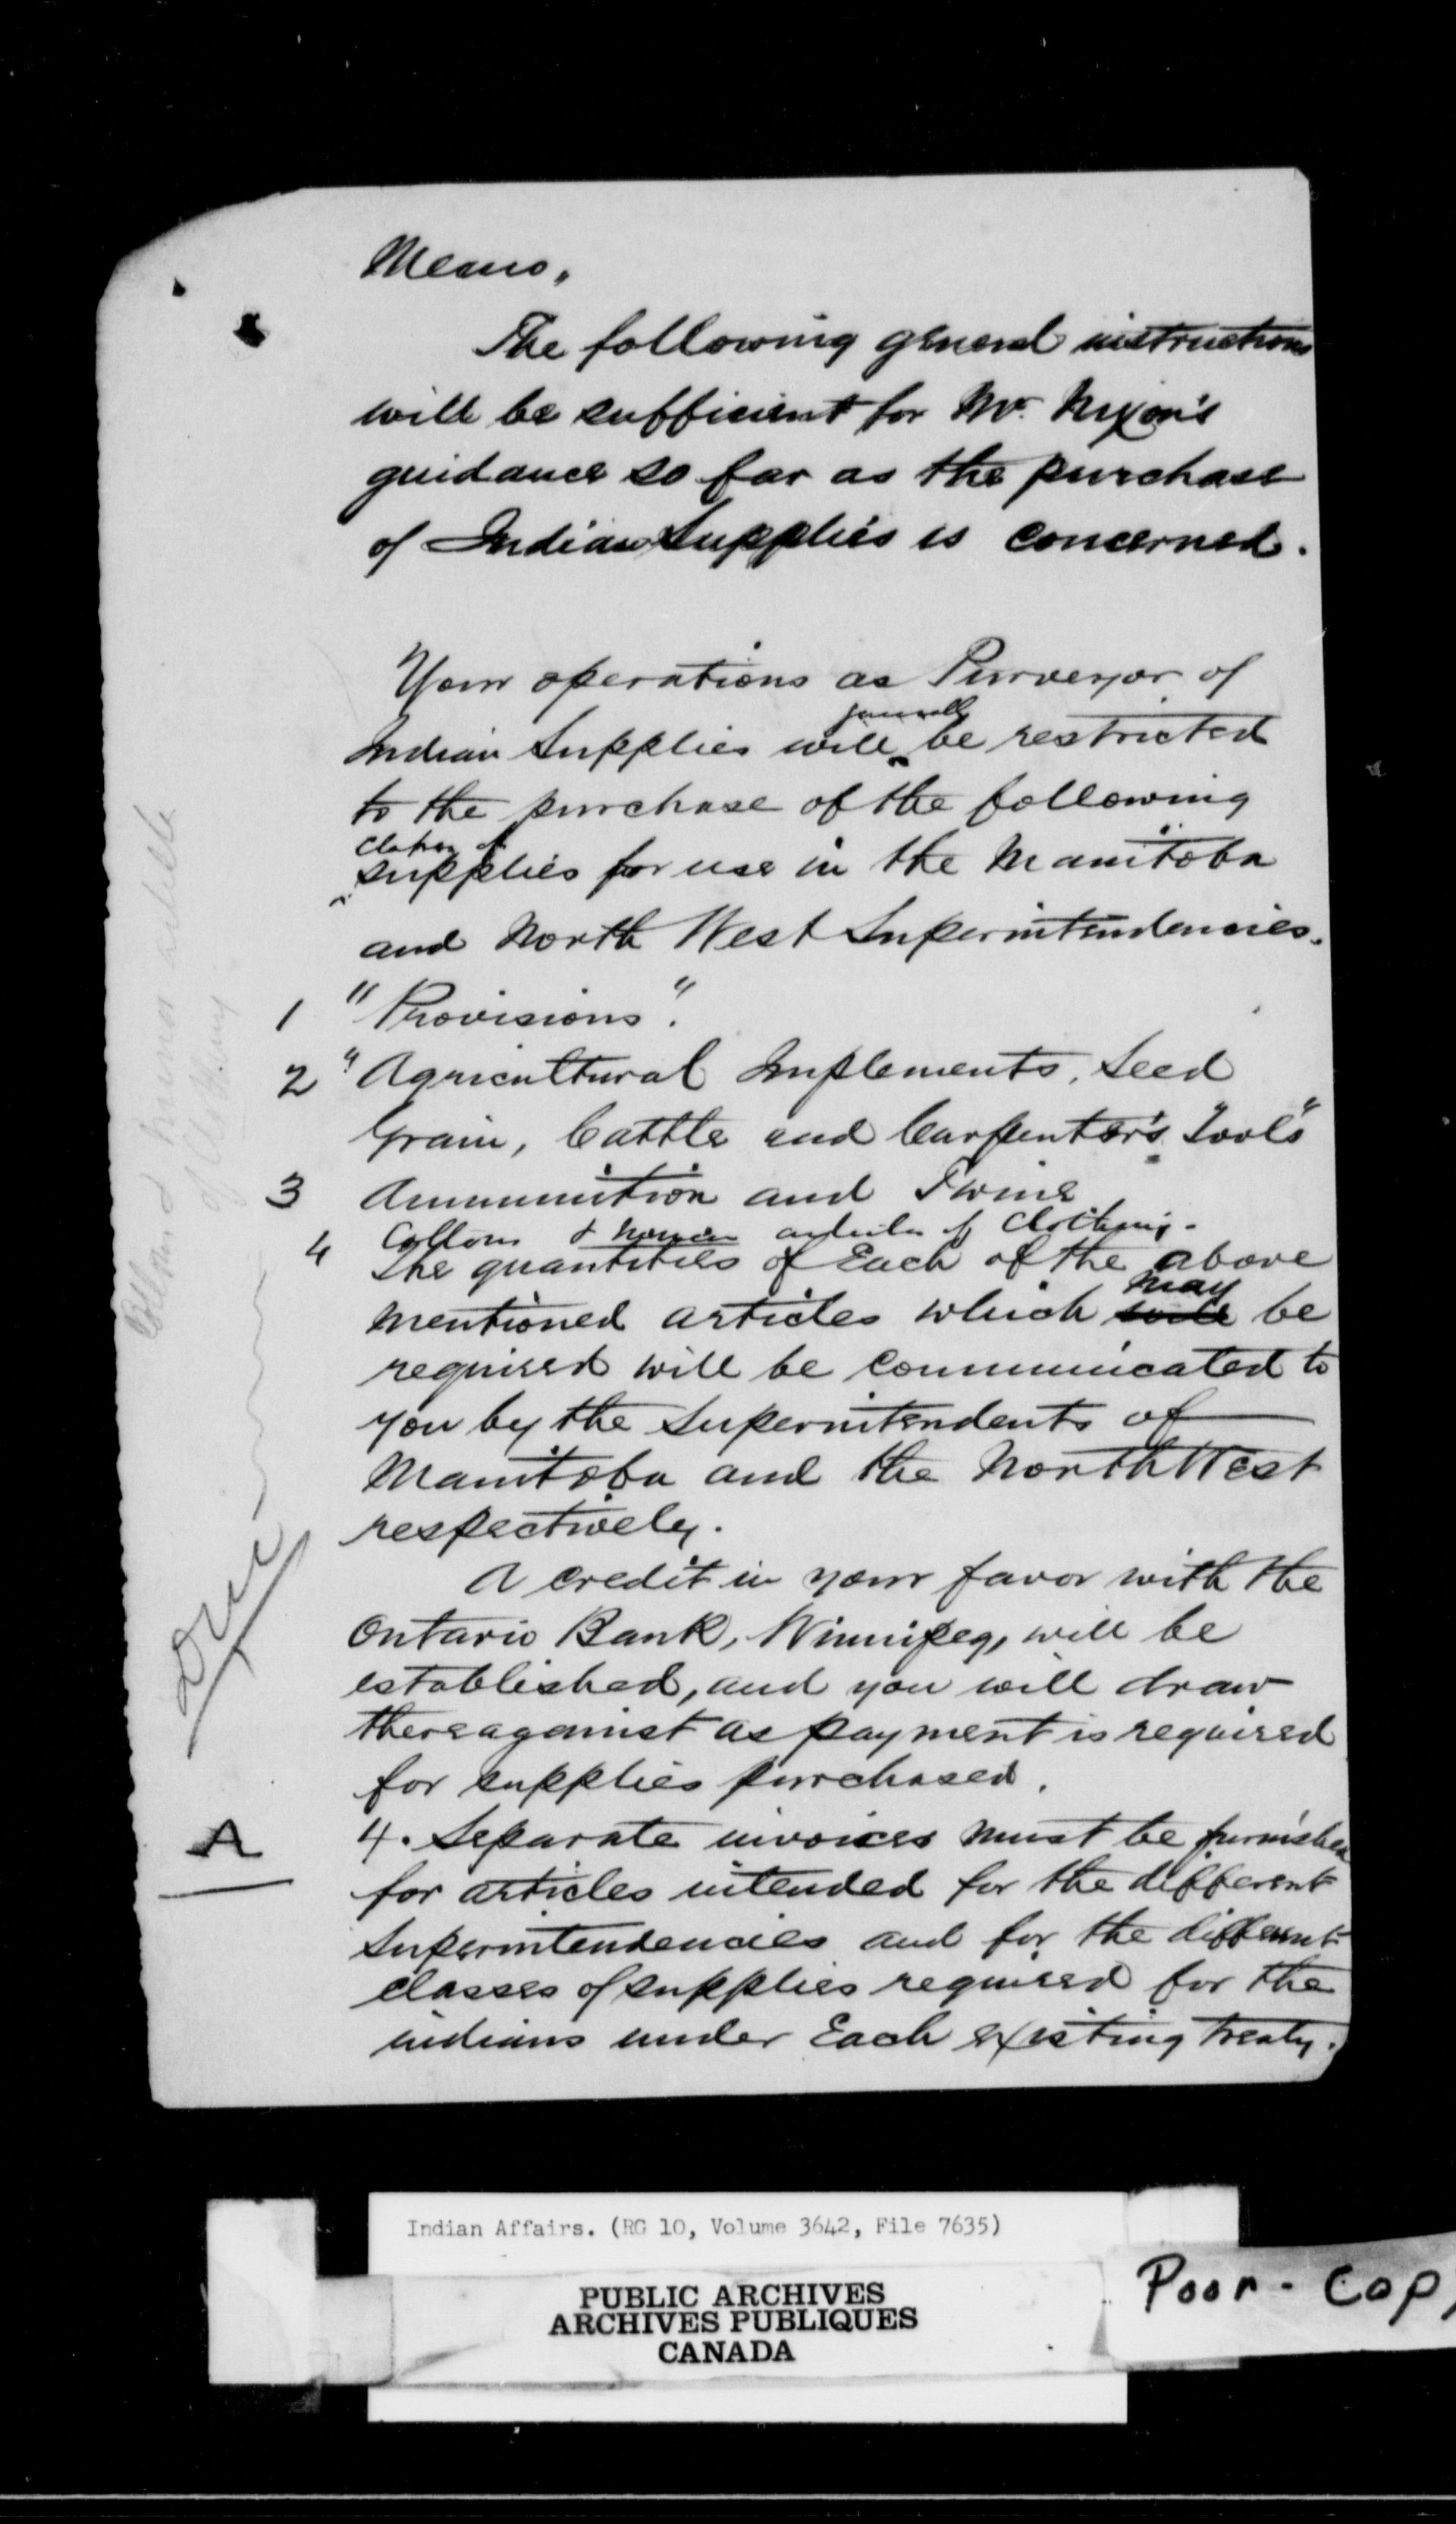 Memo,
The following general instructions
will be sufficient for Mr. Nixon's
guidance so far as the purchase
of Indian Supplies is concerned.
Your operations as Purveyor of
generally
Indian Supplies will be restricted
to the purchase of the following
classes of
supplies for use in the Manitoba
and North West Superintendencies.
1 "Provisions".
2 "Agricultural Implements, Seed
Grain, Cattle and Carpenter's Tools"
3 Ammunition and Twine
4 Cottons & articles of Clothing.
The quantities of Each of the above
may
mentioned articles which will be
required will be communicated to
you by the Superintendents of
Manitoba and the North West
respectively.
A credit in your favor with the
Ontario Bank, Winnipeg, will be
established, and you will draw
thereagainst as payment is required
for supplies purchased.
A 4. Separate invoices must be furnished
for articles intended for the different
Superintendencies and for the different
classes of supplies required for the
indians under Each existing treaty.
Indian Affairs. (RG 10, Volume 3642, File 7635)
PUBLIC ARCHIVES
ARCHIVES PUBLIQUES
CANADA
Poor - Cop